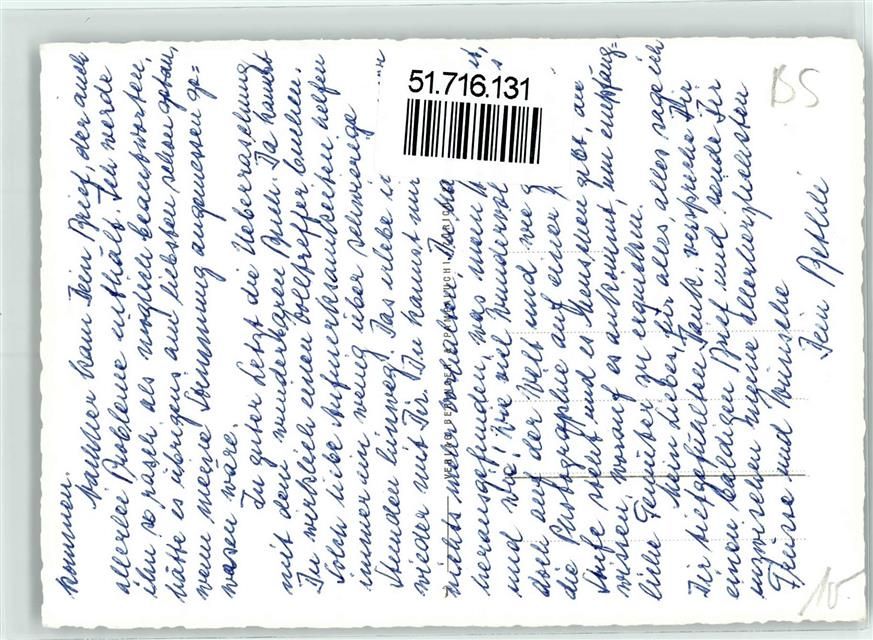 kommen.
Nachher kam Dein Brief, der auch
allerlei Probleme enthält. Ich werde
ihn so rasch als möglich beantworten,
hätte es übrigens am liebsten schon getan,
wenn meine Stimmung angemessen ge-
wesen wäre.
Zu guter Letzt die Ueberraschung
mit dem wunderbaren Buch. Da hast
Du wirklich einen Volltreffer
Solch liebe Aufmerksamkeiten helfen
immer ein wenig über schwierige
Stunden hinweg. Das erlebe
wieder mit Dir. Du kannst mir
nichts
herausgefunden, was mein
und wie! Wie viel Wundervol
doch auf der Welt und wie g
die Photographie auf einer
Stufe steht und es Menschen gibt, die
wissen, worauf es ankommt, um empfäng-
liche Gemüter zu erquicken.
Mein Lieber, für alles, alles sage ich
Dir tiefgefühlten Dank, verspreche Dir
einen baldigen Brief und sende Dir
inzwischen meine allerherzlichsten
Grüsse und Wünsche
Dein
51.716.131
BS
10.-
VERLAG BEERINGER